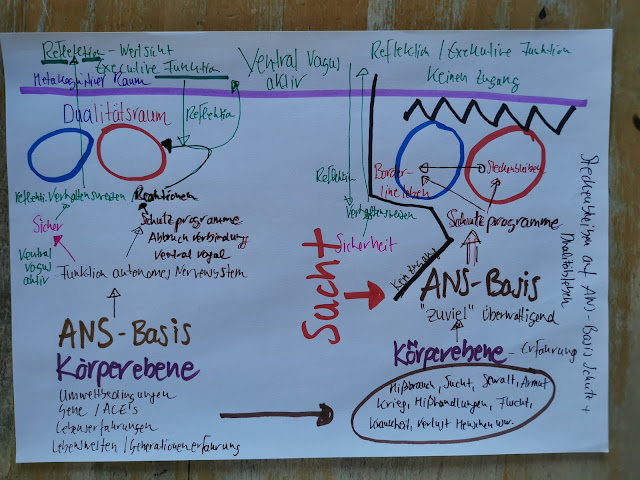 Reflektion - Weitsicht
Executive Funktion
Metakognitiver Raum
Dualitätsraum
Reflektion
Reflekti. Verhaltensweisen
Reaktionen
Sicher
Schutzprogramme
Abbruch Verbindung
ventral vagal
Ventral
Vagus
aktiv
Funktion autonomes Nervensystem
ANS-Basis
Körperebene
Umweltbedingungen
Gene / ACE's
Lebenserfahrungen
Lebenswelten / Generationenerfahrung
Ventral Vagus
aktiv
Reflektion / Exekutive Funktion
Keinen Zugang
Reflektion
Verhaltensweisen
Sicherheit
Borderline leben
Steckenbleiben
Schutzprogramme
Kein Zugang
Sucht
ANS-Basis
"zuviel" überwältigend
Körperebene - Erfahrung
Mißbrauch, Sucht, Gewalt, Armut
Krieg, Mißhandlungen, Flucht,
Krankheit, Verlust Menschen usw.
Steckenbleiben auf ANS-Basis Schutz +
Dualitätsleben